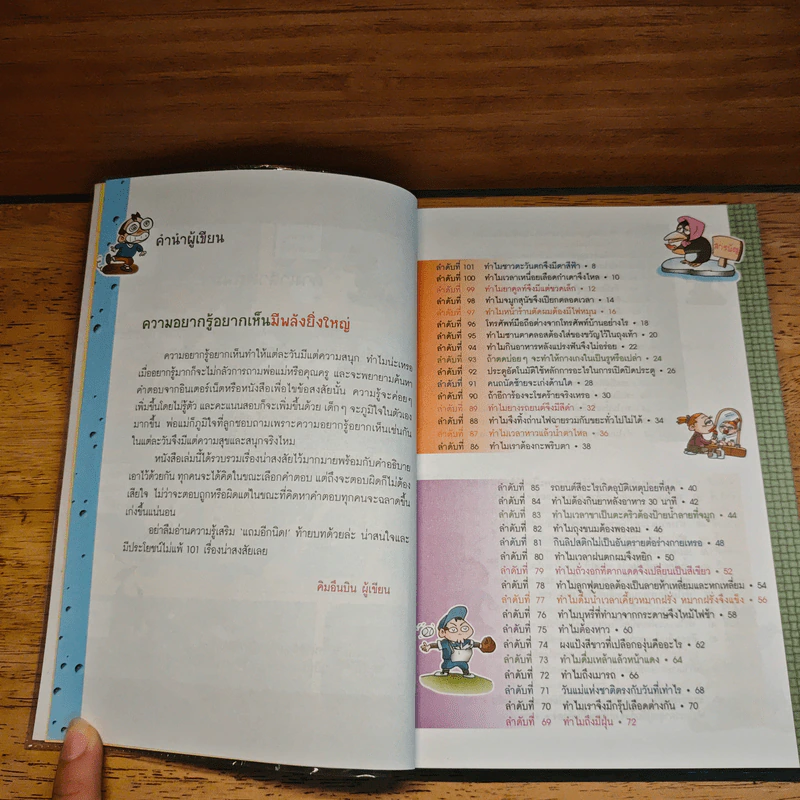 คำนำผู้เขียน
ความอยากรู้อยากเห็นมีพลังยิ่งใหญ่
ความอยากรู้อยากเห็นทำให้แต่ละวันมีแต่ความสนุก ทำไมน่ะเหรอ
เมื่ออยากรู้มากก็จะไม่กลัวการถามพ่อแม่หรือคุณครู และจะพยายามค้นหา
คำตอบจากอินเตอร์เน็ตหรือหนังสือเพื่อไขข้อสงสัยนั้น ความรู้จะค่อยๆ
เพิ่มขึ้นโดยไม่รู้ตัว และคะแนนสอบก็จะเพิ่มขึ้นด้วย เด็กๆ จะภูมิใจในตัวเอง
มากขึ้น พ่อแม่ก็ภูมิใจที่ลูกชอบถามเพราะความอยากรู้อยากเห็นเช่นกัน
ในแต่ละวันจึงมีแต่ความสุขและสนุกจริงไหม
หนังสือเล่มนี้ได้รวบรวมเรื่องน่าสงสัยไว้มากมายพร้อมกับคำอธิบาย
เอาไว้ด้วยกัน ทุกคนจะได้คิดในขณะเลือกคำตอบ แต่ถึงจะตอบผิดก็ไม่ต้อง
เสียใจ ไม่ว่าจะตอบถูกหรือผิดแต่ในขณะที่คิดหาคำตอบทุกคนจะฉลาดขึ้น
เก่งขึ้นแน่นอน
อย่าลืมอ่านความรู้เสริม 'แถมอีกนิด!' ท้ายบทด้วยล่ะ น่าสนใจและ
มีประโยชน์ไม่แพ้ 101 เรื่องน่าสงสัยเลย
คิมอึนบิน ผู้เขียน
สารบัญ
ลำดับที่ 101 ทำไมชาวตะวันตกจึงมีตาสีฟ้า • 8
ลำดับที่ 100 ทำไมเวลาเหนื่อยเลือดกำเดาจึงไหล • 10
ลำดับที่ 99 ทำไมยาคูลท์จึงมีแต่ขวดเล็ก • 12
ลำดับที่ 98 ทำไมจมูกสุนัขจึงเปียกตลอดเวลา • 14
ลำดับที่ 97 ทำไมหน้าร้านตัดผมต้องมีไฟหมุน • 16
ลำดับที่ 96 โทรศัพท์มือถือต่างจากโทรศัพท์บ้านอย่างไร • 18
ลำดับที่ 95 ทำไมซานตาคลอสต้องใส่ของขวัญไว้ในถุงเท้า • 20
ลำดับที่ 94 ทำไมกินอาหารหลังแปรงฟันจึงไม่อร่อย • 22
ลำดับที่ 93 ถ้าตดบ่อยๆ จะทำให้กางเกงในเป็นรูหรือเปล่า • 24
ลำดับที่ 92 ประตูอัตโนมัติใช้หลักการอะไรในการเปิดปิดประตู • 26
ลำดับที่ 91 คนถนัดซ้ายจะเก่งด้านใด • 28
ลำดับที่ 90 ถ้าอีการ้องจะโชคร้ายจริงเหรอ • 30
ลำดับที่ 89 ทำไมยางรถยนต์จึงมีสีดำ • 32
ลำดับที่ 88 ทำไมจึงทิ้งถ่านไฟฉายรวมกับขยะทั่วไปไม่ได้ • 34
ลำดับที่ 87 ทำไมเวลาหาวแล้วน้ำตาไหล • 36
ลำดับที่ 86 ทำไมเราต้องกะพริบตา • 38
ลำดับที่ 85 รถยนต์สีอะไรเกิดอุบัติเหตุบ่อยที่สุด • 40
ลำดับที่ 84 ทำไมต้องกินยาหลังอาหาร 30 นาที • 42
ลำดับที่ 83 ทำไมเวลาขาเป็นตะคริวต้องป้ายน้ำลายที่จมูก • 44
ลำดับที่ 82 ทำไมถุงขนมต้องพองลม • 46
ลำดับที่ 81 กินลิปสติกไม่เป็นอันตรายต่อร่างกายเหรอ • 48
ลำดับที่ 80 ทำไมเวลาฝนตกผมจึงหยิก • 50
ลำดับที่ 79 ทำไมถั่วงอกที่ตากแดดจึงเปลี่ยนเป็นสีเขียว • 52
ลำดับที่ 78 ทำไมลูกฟุตบอลต้องเป็นลายห้าเหลี่ยมและหกเหลี่ยม • 54
ลำดับที่ 77 ทำไมดื่มน้ำเวลาเคี้ยวหมากฝรั่ง หมากฝรั่งจึงแข็ง • 56
ลำดับที่ 76 ทำไมบุหรี่ที่ทำมาจากกระดาษจึงไหม้ไฟช้า • 58
ลำดับที่ 75 ทำไมต้องหาว • 60
ลำดับที่ 74 ผงแป้งสีขาวที่เปลือกองุ่นคืออะไร • 62
ลำดับที่ 73 ทำไมดื่มเหล้าแล้วหน้าแดง • 64
ลำดับที่ 72 ทำไมถึงเมารถ • 66
ลำดับที่ 71 วันแม่แห่งชาติตรงกับวันที่เท่าไร • 68
ลำดับที่ 70 ทำไมเราจึงมีกรุ๊ปเลือดต่างกัน • 70
ลำดับที่ 69 ทำไมถึงมีฝุ่น • 72